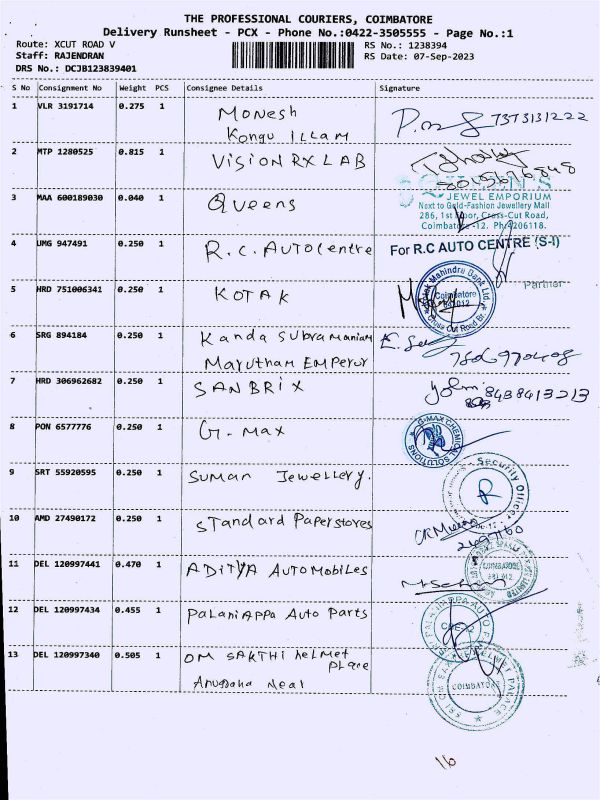 THE PROFESSIONAL COURIERS, COIMBATORE
Delivery Runsheet - PCX - Phone No.:0422-3505555 - Page No.:1
Route: XCUT ROAD V
RS No.: 1238394
Staff: RAJENDRAN
RS Date: 07-Sep-2023
DRS No.: DCJB123839401
S No Consignment No Weight PCS Consignee Details Signature
1 VLR 3191714 0.275 1 Monesh
Kongu ILLAM
2 MTP 1280525 0.815 1 VISION RX LAB
3 MAA 600189030 0.040 1 Queens
QUEEN'S
JEWEL EMPORIUM
Next to Gold-Fashion Jewellery Mall
286, 1st Floor, Cross-Cut Road,
Coimbatore -12. Ph:4206118.
4 UMG 947491 0.250 1 R.C. AUTO Centre
For R.C AUTO CENTRE (S-I)
Partner
5 HRD 751006341 0.250 1 KOTAK
Kotak Mahindra Bank Ltd.
Coimbatore
641012
Cross Cut Road Br.
6 SRG 894184 0.250 1 Kanda Subramaniam
Marutham Emperor
7 HRD 306962682 0.250 1 SANBRIX
8438413213
8 PON 6577776 0.250 1 G-max
G-MAX CHEMICAL SOLUTIONS
9 SRT 55920595 0.250 1 Suman Jewellery.
Security Officer
10 AMD 27490172 0.250 1 Standard Paper stores
11 DEL 120997441 0.470 1 ADITYA AUTOMOBILES
COIMBATORE
641 012
12 DEL 120997434 0.455 1 Palaniappa Auto Parts
13 DEL 120997340 0.505 1 OM SAKTHI helmet
place
COIMBATORE
16